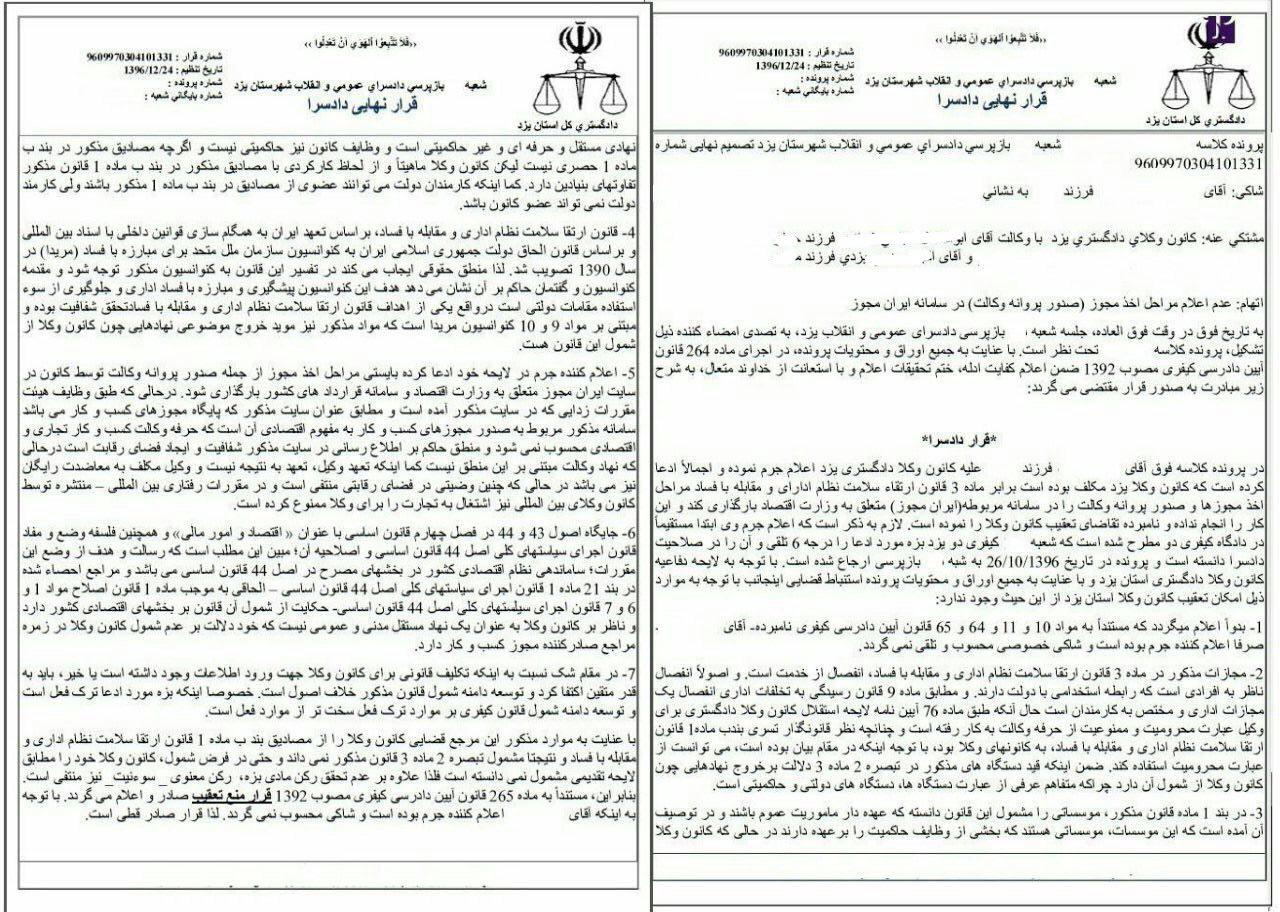 «فَلَا تَتَّبِعُوا الْهَوَي أَنْ تَعْدِلُوا»
شماره قرار : 9609970304101331
تاریخ تنظیم : 1396/12/24
شماره پرونده :
شماره بایگاني شعبه :
شعبه بازپرسي دادسراي عمومي و انقلاب شهرستان یزد
قرار نهایی دادسرا
دادگستري کل استان یزد
پرونده کلاسه شعبه بازپرسي دادسراي عمومي و انقلاب شهرستان یزد تصمیم نهایی شماره
9609970304101331
شاکي: آقای فرزند به نشاني
مشتکي عنه: کانون وکلاي دادگستري یزد با وکالت آقای فرزند
و آقای یزدي فرزند
اتهام: عدم اعلام مراحل اخذ مجوز (صدور پروانه وکالت) در سامانه ایران مجوز
به تاریخ فوق در وقت فوق العاده، جلسه شعبه بازپرسی دادسرای عمومی و انقلاب یزد، به تصدی امضاء کننده ذیل
تشکیل، پرونده کلاسه تحت نظر است. با عنایت به جمیع اوراق و محتویات پرونده، در اجرای ماده 264 قانون
آیین دادرسی کیفری مصوب 1392 ضمن اعلام کفایت ادله، ختم تحقیقات اعلام و با استعانت از خداوند متعال، به شرح
زیر مبادرت به صدور قرار مقتضی می گردند:
*قرار دادسرا*
در پرونده کلاسه فوق آقای فرزند علیه کانون وکلا دادگستری یزد اعلام جرم نموده و اجمالاً ادعا
کرده است که کانون وکلا یزد مکلف بوده است برابر ماده 3 قانون ارتقاء سلامت نظام ادارای و مقابله با فساد مراحل
اخذ مجوزها و صدور پروانه وکالت را در سامانه مربوطه(ایران مجوز) متعلق به وزارت اقتصاد بارگذاری کند و این
کار را انجام نداده و نامبرده تقاضای تعقیب کانون وکلا را نموده است. لازم به ذکر است که اعلام جرم وی ابتدا مستقیماً
در دادگاه کیفری دو مطرح شده است که شعبه کیفری دو یزد بزه مورد ادعا را درجه 6 تلقی و آن را در صلاحیت
دادسرا دانسته است و پرونده در تاریخ 26/10/1396 به شعبه بازپرسی ارجاع شده است. با توجه به لایحه دفاعیه
کانون وکلا دادگستری استان یزد و با عنایت به جمیع اوراق و محتویات پرونده استنباط قضایی اینجانب با توجه به موارد
ذیل امکان تعقیب کانون وکلا استان یزد از این حیث وجود ندارد:
1- بدواً اعلام میگردد که مستنداً به مواد 10 و 11 و 64 و 65 قانون آیین دادرسی کیفری نامبرده- آقای
صرفا اعلام کننده جرم بوده است و شاکی خصوصی محسوب و تلقی نمی گردد.
2- مجازات مذکور در ماده 3 قانون ارتقا سلامت نظام اداری و مقابله با فساد، انفصال از خدمت است. و اصولاً انفصال
ناظر به افرادی است که رابطه استخدامی با دولت دارند. و مطابق ماده 9 قانون رسیدگی به تخلفات اداری انفصال یک
مجازات اداری و مختص به کارمندان است حال آنکه طبق ماده 76 آیین نامه لایحه استقلال کانون وکلا دادگستری برای
وکیل عبارت محرومیت و ممنوعیت از حرفه وکالت به کار رفته است و چنانچه نظر قانونگذار تسری بندب ماده1 قانون
ارتقا سلامت نظام اداری و مقابله با فساد، به کانونهای وکلا بود، با توجه اینکه در مقام بیان بوده است، می توانست از
عبارت محرومیت استفاده کند. ضمن اینکه قید دستگاه های مذکور در تبصره 2 ماده 3 دلالت برخروج نهادهایی چون
کانون وکلا از شمول آن دارد چراکه متفاهم عرفی از عبارت دستگاه ها، دستگاه های دولتی و حاکمیتی است.
3- در بند 1 ماده قانون مذکور، موسساتی را مشمول این قانون دانسته که عهده دار ماموریت عموم باشند و در توصیف
آن آمده است که این موسسات، موسساتی هستند که بخشی از وظایف حاکمیت را برعهده دارند در حالی که کانون وکلا
«فَلَا تَتَّبِعُوا الْهَوَي أَنْ تَعْدِلُوا»
شماره قرار : 9609970304101331
تاریخ تنظیم : 1396/12/24
شماره پرونده :
شماره بایگاني شعبه :
شعبه بازپرسي دادسراي عمومي و انقلاب شهرستان یزد
قرار نهایی دادسرا
دادگستري کل استان یزد
نهادی مستقل و حرفه ای و غیر حاکمیتی است و وظایف کانون نیز حاکمیتی نیست و اگرچه مصادیق مذکور در بند ب
ماده 1 حصری نیست لیکن کانون وکلا ماهیتاً و از لحاظ کارکردی با مصادیق مذکور در بند ب ماده 1 قانون مذکور
تفاوتهای بنیادین دارد. کما اینکه کارمندان دولت می توانند عضوی از مصادیق در بند ب ماده 1 مذکور باشند ولی کارمند
دولت نمی تواند عضو کانون باشد.
4- قانون ارتقا سلامت نظام اداری و مقابله با فساد، براساس تعهد ایران به همگام سازی قوانین داخلی با اسناد بین المللی
و براساس قانون الحاق دولت جمهوری اسلامی ایران به کنوانسیون سازمان ملل متحد برای مبارزه با فساد (مریدا) در
سال 1390 تصویب شد. لذا منطق حقوقی ایجاب می کند در تفسیر این قانون به کنوانسیون مذکور توجه شود و مقدمه
کنوانسیون و گفتمان حاکم بر آن نشان می دهد هدف این کنوانسیون پیشگیری و مبارزه با فساد اداری و جلوگیری از سوء
استفاده مقامات دولتی است درواقع یکی از اهداف قانون ارتقا سلامت نظام اداری و مقابله با فسادتحقق شفافیت بوده و
مبتنی بر مواد 9 و 10 کنوانسیون مریدا است که مواد مذکور نیز موید خروج موضوعی نهادهایی چون کانون وکلا از
شمول این قانون هست.
5- اعلام کننده جرم در لایحه خود ادعا کرده بایستی مراحل اخذ مجوز از جمله صدور پروانه وکالت توسط کانون در
سایت ایران مجوز متعلق به وزارت اقتصاد و سامانه قرارداد های کشور بارگذاری شود. درحالی که طبق وظایف هیئت
مقررات زدایی که در سایت مذکور آمده است و مطابق عنوان سایت مذکور که پایگاه مجوزهای کسب و کار می باشد
سامانه مذکور مربوط به صدور مجوزهای کسب و کار به مفهوم اقتصادی آن است که حرفه وکالت کسب و کار تجاری و
اقتصادی محسوب نمی شود و منطق حاکم بر اطلاع رسانی در سایت مذکور شفافیت و ایجاد فضای رقابت است درحالی
که نهاد وکالت مبتنی بر این منطق نیست کما اینکه تعهد وکیل، تعهد به نتیجه نیست و وکیل مکلف به معاضدت رایگان
نیز می باشد در حالی که چنین وضیتی در فضای رقابتی منتفی است و در مقررات رفتاری بین المللی – منتشره توسط
کانون وکلای بین المللی نیز اشتغال به تجارت را برای وکلا ممنوع کرده است.
6- جایگاه اصول 43 و 44 در فصل چهارم قانون اساسی با عنوان « اقتصاد و امور مالی» و همچنین فلسفه وضع و مفاد
قانون اجرای سیاستهای کلی اصل 44 قانون اساسی و اصلاحیه آن؛ مبین این مطلب است که رسالت و هدف از وضع این
مقررات؛ ساماندهی نظام اقتصادی کشور در بخشهای مصرح در اصل 44 قانون اساسی می باشد و مراجع احصاء شده
در بند 21 ماده 1 قانون اجرای سیاستهای کلی اصل 44 قانون اساسی – الحاقی به موجب ماده 1 قانون اصلاح مواد 1 و
6 و 7 قانون اجرای سیلستهای کلی اصل 44 قانون اساسی- حکایت از شمول آن قانون بر بخشهای اقتصادی کشور دارد
و ناظر بر کانون وکلا به عنوان یک نهاد مستقل مدنی و عمومی نیست که خود دلالت بر عدم شمول کانون وکلا در زمره
مراجع صادرکننده مجوز کسب و کار دارد.
7- در مقام شک نسبت به اینکه تکلیف قانونی برای کانون وکلا جهت ورود اطلاعات وجود داشته است یا خیر، باید به
قدر متقین اکتفا کرد و توسعه دامنه شمول قانون مذکور خلاف اصول است. خصوصا اینکه بزه مورد ادعا ترک فعل است
و توسعه دامنه شمول قانون کیفری بر موارد ترک فعل سخت تر از موارد فعل است.
با عنایت به موارد مذکور این مرجع قضایی کانون وکلا را از مصادیق بند ب ماده 1 قانون ارتقا سلامت نظام اداری و
مقابله با فساد و نتیجتا مشمول تبصره 2 ماده 3 قانون مذکور نمی داند و حتی در فرض شمول، کانون وکلا خود را مطابق
لایحه تقدیمی مشمول نمی دانسته است فلذا علاوه بر عدم تحقق رکن مادی بزه، رکن معنوی_ سوءنیت_ نیز منتفی است.
بنابراین، مستنداً به ماده 265 قانون آیین دادرسی کیفری مصوب 1392 قرار منع تعقیب صادر و اعلام می گردند. با توجه
به اینکه آقای اعلام کننده جرم بوده است و شاکی محسوب نمی گردند. لذا قرار صادر قطی است.